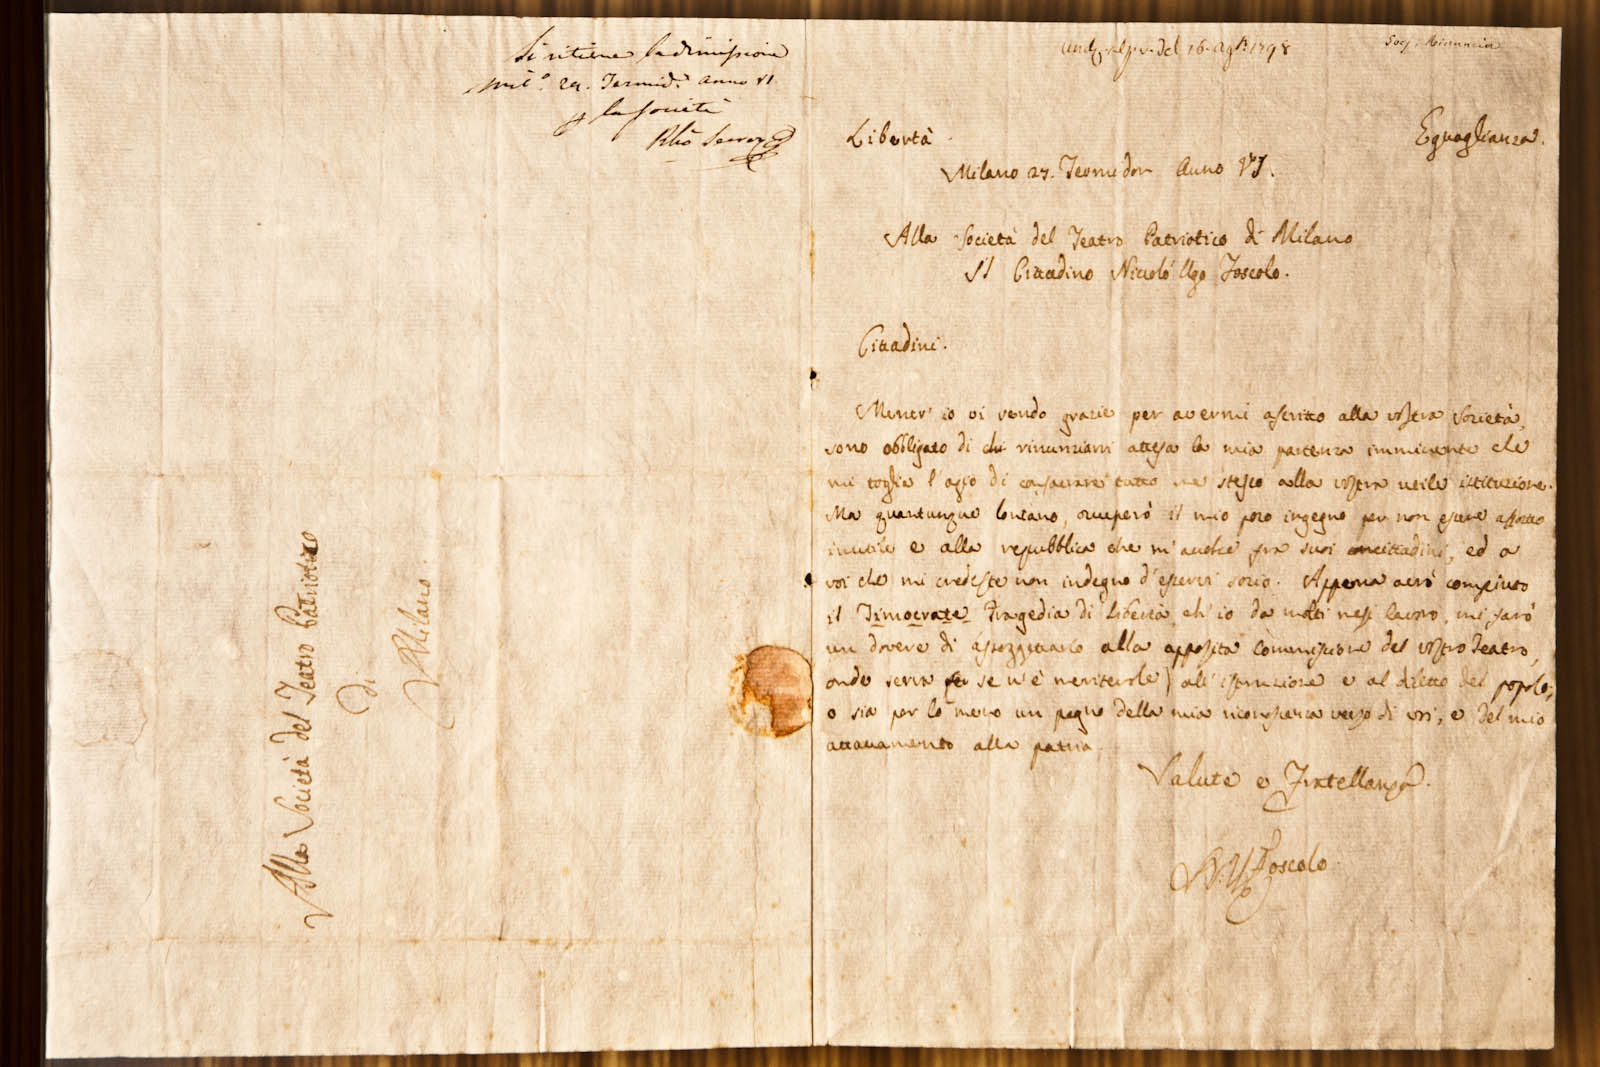 Si ritiene la dimissione
Mil.º 29. Termid.r anno VI
la società
del 16. Ag.to 1798
Rinuncia
Libertà
Eguaglianza.
Milano 27. Termidor Anno VI.
Alla Società del Teatro Patriotico di Milano
Il Cittadino Niccolò Ugo Foscolo.
Cittadini.
Mentr' io vi rendo grazie per avermi ascritto alla vostra Società,
sono obbligato di rinunziarvi attesa la mia partenza imminente che
mi toglie l'agio di consacrare tutto me stesso alla vostra utile istituzione.
Ma quantunque lontano, occuperò il mio poco ingegno per non essere affatto
inutile e alla repubblica che m'anovera fra suoi concittadini, ed a
voi che mi credeste non indegno d'esservi socio. Appena avrò compiuto
il Timocrate Tragedia di Libertà, ch' io da molti mesi lavoro, mi farò
un dovere di assoggettarlo alla apposita Commissione del vostro Teatro,
onde serva se n'è meritevole) all' istruzione e al diletto del popolo;
o sia per lo meno un pegno della mia riconoscenza verso di voi, e del mio
attaccamento alla patria.
Salute e Fratellanza.
N. Ugo Foscolo
Alla Società del Teatro Patriotico
di
Milano.